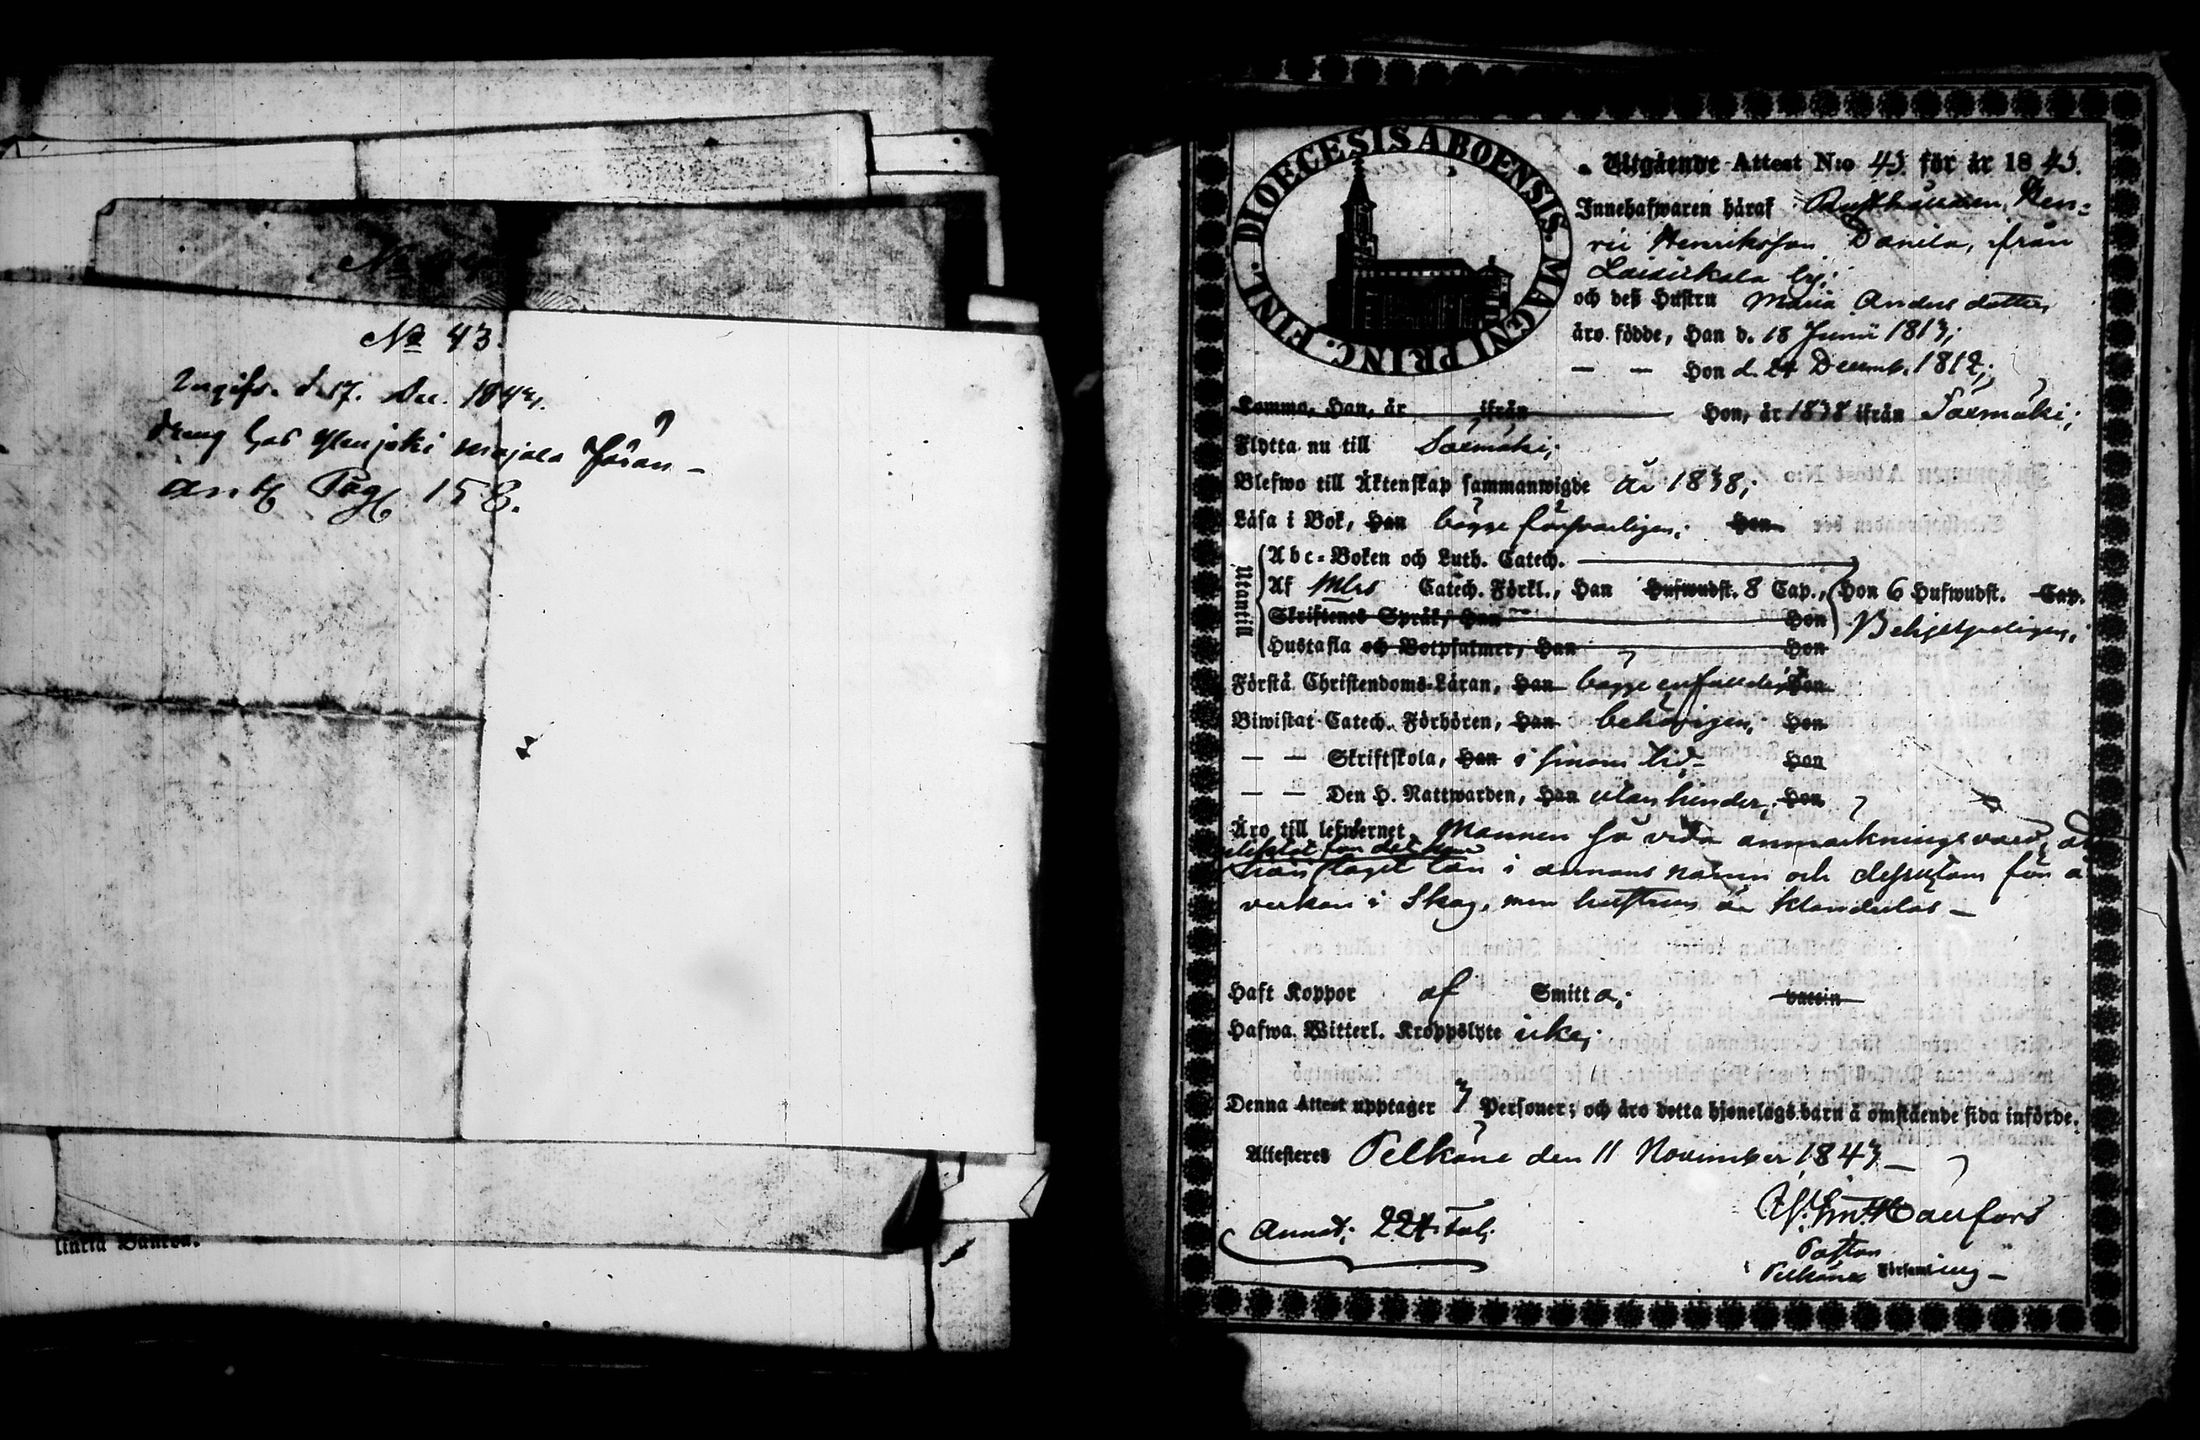 No 43.
Ingifv. d. 17. Dec. 1843.
dräng hos
Pag 158.
DIOECESIS ABOENSIS. MAGNI PRINC. FINL.
Utgående Attest N:o 43 för år 1843.
Innehafwaren häraf Rusthållaren, Hen-
ric Henriksson Danila, ifrån
by;
och deß Hustru Maria Anders dotter,
äro födde, Han d. 18 Junii 1813;
— — Hon d. 24 Decemb. 1812;
Komma, Han, år ifrån Hon, år 1838 ifrån Säxmäki;
Flytta nu till Säxmäki;
Blefwo till Äktenskap sammanwigde år 1838;
Läsa i Bok, Han bägge försvarligen; Hon
Utantill
Abc-Boken och Luth. Catech.
Af Mlrs Catech. Förkl., Han Hufwudst. 8 Cap., Hon 6 Hufwudst. Cap.
Skriftenes Språk, Han Hon Behjelpeligen;
Hustafla och Botpsalmer, Han Hon
Förstå Christendoms-Läran, Han bägge enfaldeligt Hon
Biwistat Catech. Förhören, Han behörigen; Hon
— — Skriftskola, Han i sinom tid Hon
— — Den H. Nattwarden, Han utan hinder; Hon
Äro till lefwernet Mannen så vida anmärkningsvärd, at
han tagit lån i annans namn och dessutom för å
verkan i Skog, men hustrun är klanderlös —
Haft Koppor af Smitta; vaccin
Hafwa Witterl. Kroppslyte icke;
Denna Attest upptager 7 Personer; och äro detta hjonelags barn å omstående sida införde.
Attesteres Pelkäne den 11 November 1843 —
Annot; 224 Fol;
Pastor
i Pelkäne Församling —